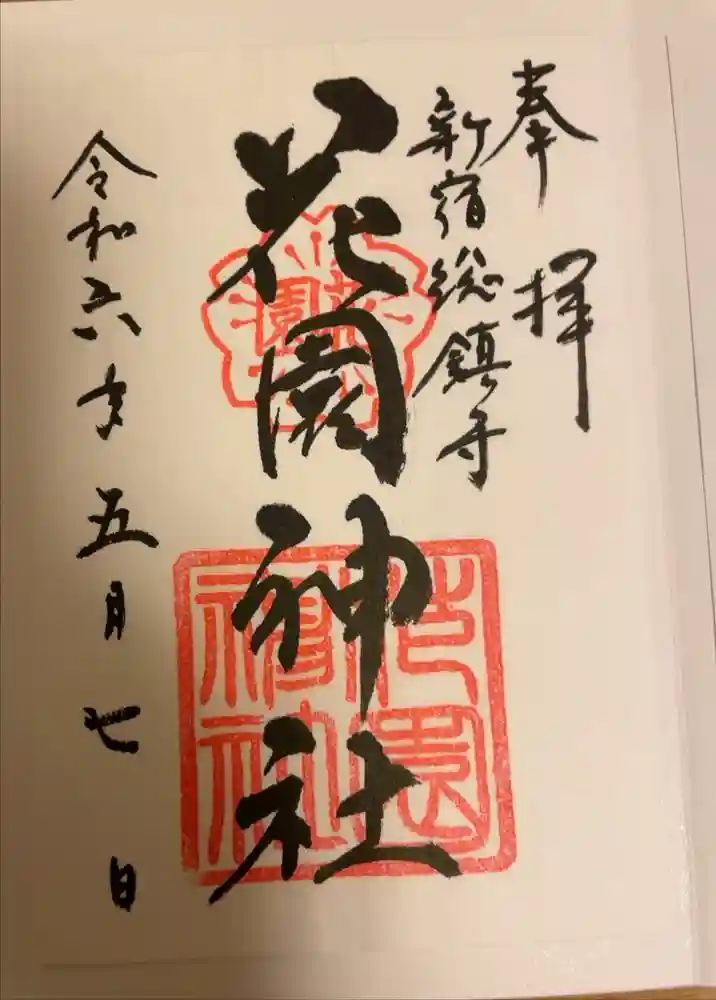 奉拝
新宿総鎮守
花園神社
花園神社
花園神社
令和六年五月七日